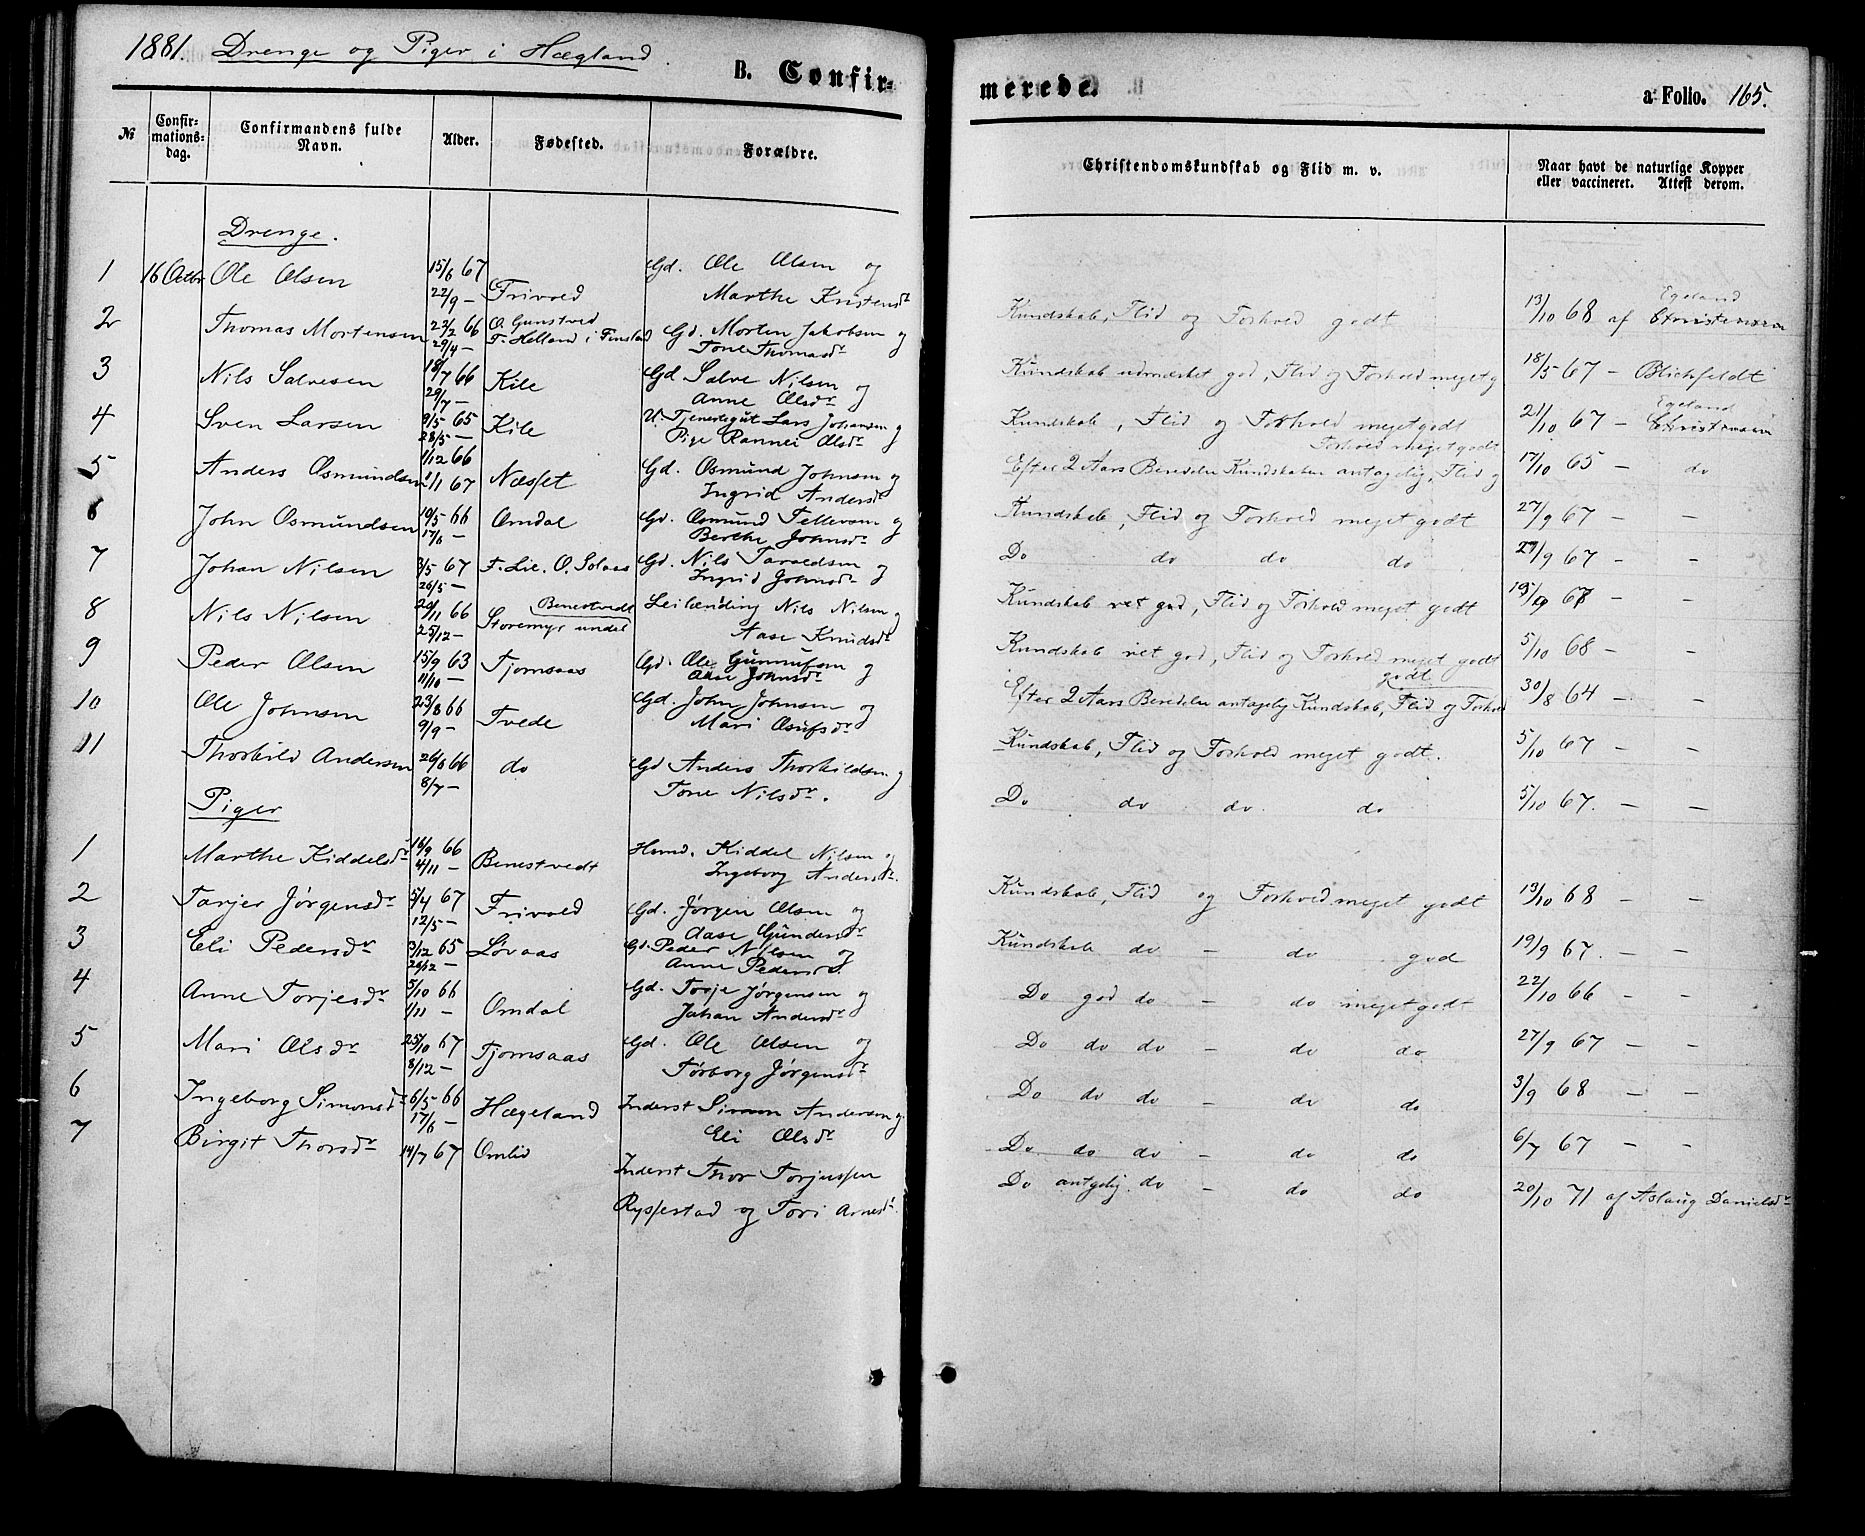 1881. Drenge og Piger i Hægland.
B. Confir-
№
Confir-
mations-
dag.
Confirmandens fulde
Navn.
Alder.
Fødested.
Forældre.
Drenge.
1 16 Octbr Ole Olsen 15/6 67 22/9 – Frivold Gd. Ole Olsen og
Marthe Kristensdr
2 Thomas Mortensen 22/2 66 29/4 – O. Gunstved
F. Helland i Finsland Gd. Morten Jakobsen og
Tone Thomasdr
3 Nils Salvesen 18/7 66 29/7 – Kile Gd Salve Nilsen og
Anne Olsdr
4 Sven Larsen 9/5 65 28/5 – Kile U. Tjenestegut Lars Johansen og
Pige Rannei Olsdr
5 Anders Osmundsen 1/12 66 1/1 67 Næsset Gd. Osmund Johnsen og
Ingrid Andersdr
6 John Osmundsen 19/5 66 17/6 – Omdal Gd. Osmund Tellevsen og
Berthe Johnsdr
7 Johan Nilsen 3/5 67 26/5 – F. Lie. O. Solaas Gd. Nils Taraldsen og
Ingrid Johnsdr
8 Nils Nilsen 20/11 66 25/12 – Benestvedt
Storemyr undel Leilænding Nils Nilsen og
Aase Knudsdr
9 Peder Olsen 15/9 63 11/10 – Tjomsaas Gd. Ole Gunnufsen og
Aase Johnsdr
10 Ole Johnsen 23/8 66 9/9 – Tvede Gd. John Johnsen og
Mari Osufsdr
11 Thorkild Andersen 26/6 66 8/7 – do Gd Anders Thorkildsen og
Tone Nilsdr.
Piger
1 Marthe Kiddelsdr 18/9 66 4/11 – Benestvedt Hmd. Kiddel Nilsen og
Ingeborg Andersdr.
2 Tarjer Jørgensdr 5/4 67 12/5 – Frivold Gd. Jørgen Olsen og
Aase Gundersdr
3 Eli Pedersdr 3/12 65 26/12 – Løvaas Gd. Peder Nilsen og
Anne Pedersd
4 Anne Torjesdr 5/10 66 1/11 – Omdal Gd. Torje Jørgensen og
Johan Andersdr
5 Mari Olsdr 25/10 67 8/12 – Tjomsaas Gd. Ole Olsen og
Torborg Jørgensdr
6 Ingeborg Simonsdr 6/5 66 17/6 – Hægeland Inderst Simon Andersen og
Eli Olsdr
7 Birgit Thorsdr 14/7 67 Omlid Inderst Thor Torjussen
Ryssestad og Tori Arnesdr.
merede.
a: Folio. 165.
Christendomskundskab og Flid m. v.
Naar havt de naturlige Kopper
eller vaccineret. Attest derom.
Kundskab, Flid og Forhold godt 13/10 68 af Egeland Christensen
Kundskab udmærket god, Flid og Forhold meget g 18/5 67 – Blichfeldt
Kundskab, Flid og Forhold meget godt 21/10 67 – Egeland Christensen
Forhold meget godt
Efter 2 Aars Beredelse Kundskaben antagelig, Flid og 17/10 65 – do
Kundskab, Flid og Forhold meget godt 27/9 67 – –
Do do do do 27/9 67 – –
Kundskab ret god, Flid og Forhold meget godt 67 – –
Kundskab ret god, Flid og Forhold meget godt 5/10 68 – –
godt
Efter 2 Aars Beredelse antagelig Kundskab, Flid og Forhold 30/8 64 – –
Kundskab, Flid og Forhold meget godt. 5/10 67 – –
Do do do do 5/10 67. – –
Kundskab, Flid og Forhold meget godt 13/10 68 – –
Kundskab do – do god 19/9 67. – –
Do god do – do meget godt 22/10 66 – –
Do do do – do do 27/9 67 – –
Do do do – do do 3/9 68 – –
Do do do – do do 6/7 67 – –
Do antgelig do – do do 20/10 71 af Aslaug Danielsdr